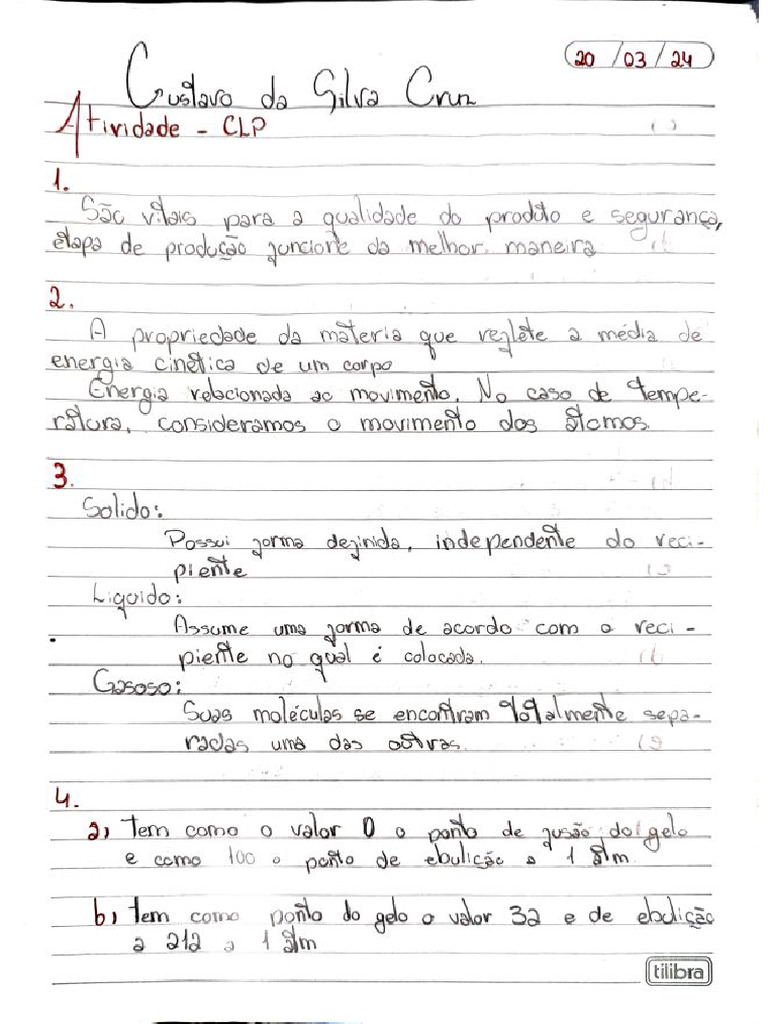 20/03/24
Gustavo da Silva Cruz
Atividade - CLP
1.
São vitais para a qualidade do produto e segurança,
etapa de produção funcione da melhor maneira
2.
A propriedade da materia que reflete a média de
energia cinética de um corpo
Energia relacionada ao movimento. No caso de tempe-
ratura, consideramos o movimento dos átomos
3.
Solido:
Possui forma definida, independente do reci-
piente
Liquido:
Assume uma forma de acordo com o reci-
piente no qual é colocada.
Gasoso:
Suas moléculas se encontram totalmente sepa-
radas uma das outras.
4.
a) Tem como o valor 0 o ponto de fusão do gelo
e como 100 o ponto de ebulição a 1 atm
b) Tem como ponto do gelo o valor 32 e de ebulição
a 212 a 1 atm
tilibra